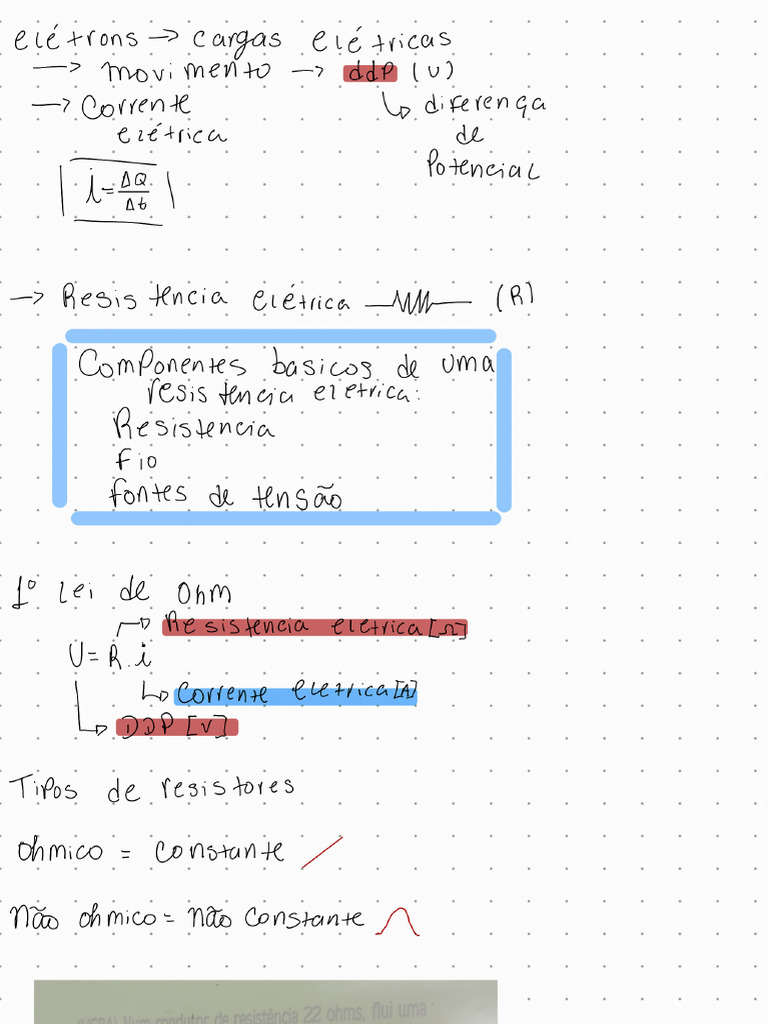 elétrons → cargas elétricas
→ movimento → ddP (U)
→ Corrente elétrica
↳ diferença de Potencial
i = ΔQ/Δt
→ Resistencia elétrica (R)
Componentes basicos de uma
resistencia eletrica:
Resistencia
fio
fontes de tensão
1º Lei de Ohm
Resistencia eletrica [Ω]
U = R.i
Corrente eletrica [A]
DDP [V]
Tipos de resistores
ohmico = constante
Não ohmico = não constante
condutor de resistência 22 ohms, flui uma